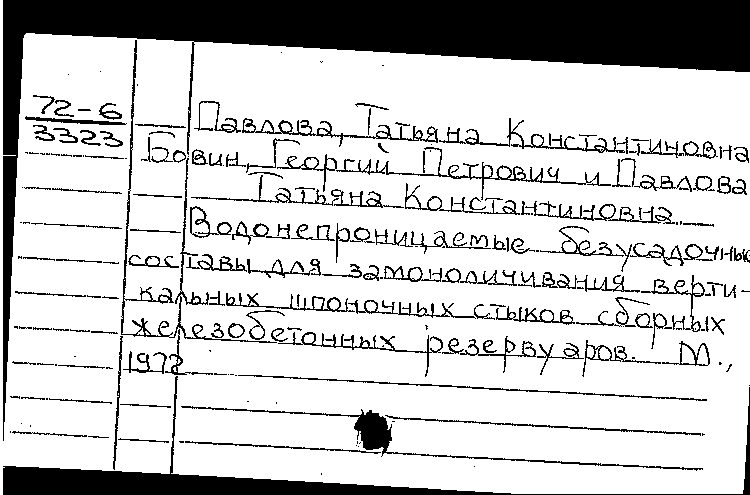 72-6
3323
Павлова, Татьяна Константиновна
Бовин, Георгий Петрович и Павлова
Татьяна Константиновна
Водонепроницаемые безусадочные
составы для замоноличивания верти-
кальных шпоночных стыков сборных
железобетонных резервуаров. М.,
1972